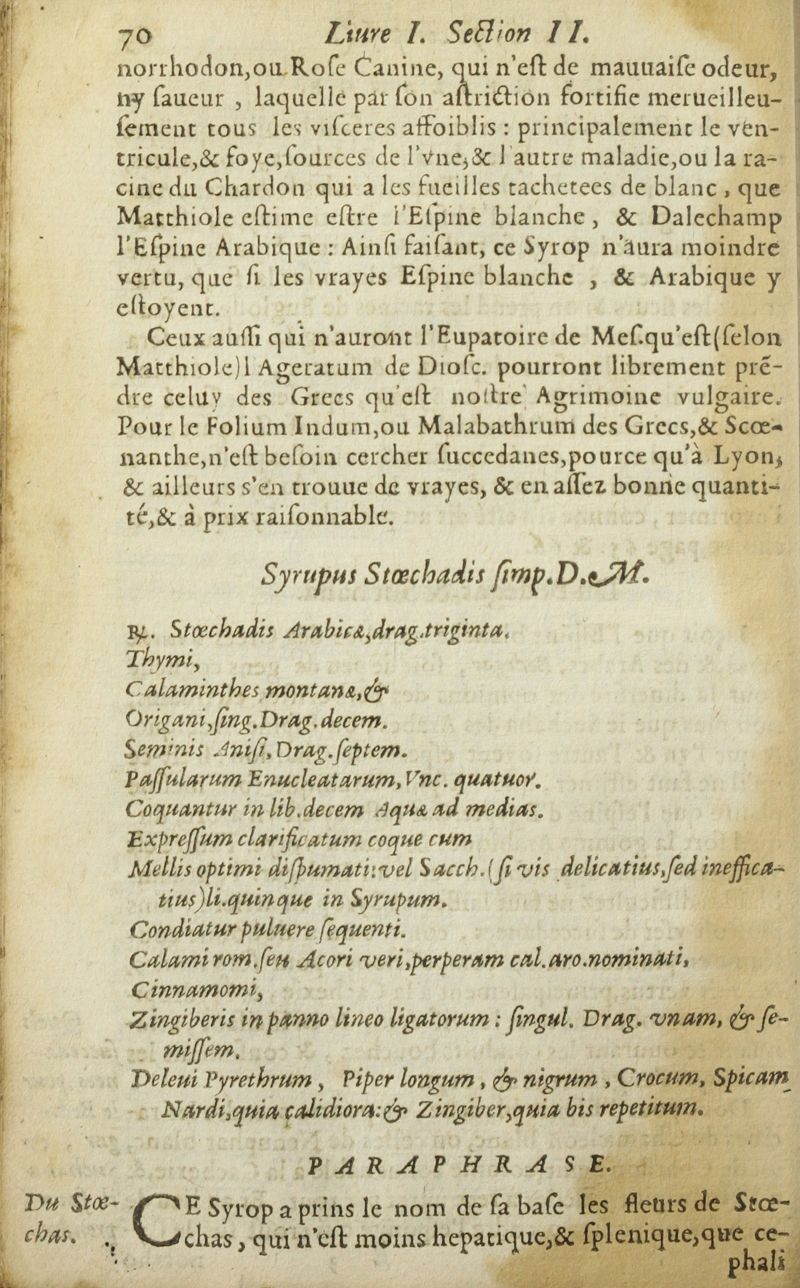 70 Liure I. Section II.
norrhodon,ou Rose Canine, qui n'est de mauuaise odeur,
ny saueur , laquelle par son astriction fortifie merueilleu-
sement tous les visceres affoiblis : principalement le ven-
tricule,& foye,sources de l'vne,& l'autre maladie,ou la ra-
cine du Chardon qui a les fueilles tachetees de blanc , que
Matthiole estime estre l'Espine blanche , & Dalechamp
l'Espine Arabique : Ainsi faisant, ce Syrop n'aura moindre
vertu, que si les vrayes Espine blanche , & Arabique y
estoyent.
Ceux aussi qui n'auront l'Eupatoire de Mes.qu'est(selon
Matthiole)l Ageratum de Diosc. pourront librement prẽ-
dre celuy des Grecs qu'est nostre Agrimoine vulgaire.
Pour le Folium Indum,ou Malabathrum des Grecs,& Scœ-
nanthe,n'est besoin cercher succedanes,pource qu'à Lyon,
& ailleurs s'en trouue de vrayes, & en assez bonne quanti-
té,& à prix raisonnable.
Syrupus Stœchadis simp.D.M.
℞. Stœchadis Arabicæ,drag.triginta.
Thymi,
Calaminthes montanæ,&
Origani,sing.Drag.decem.
Seminis Anisi,Drag.septem.
Passularum Enucleatarum,Vnc. quatuor.
Coquantur in lib.decem Aquæ ad medias.
Expressum clarificatum coque cum
Mellis optimi dispumati:vel Sacch.(si vis delicatius,sed ineffica-
tius)li.quinque in Syrupum.
Condiatur puluere sequenti.
Calami rom.seu Acori veri,perperam cal.aro.nominati,
Cinnamomi,
Zingiberis in panno lineo ligatorum : singul. Drag. vnam, & se-
missem.
Deleui Pyrethrum , Piper longum , & nigrum , Crocum, Spicam
Nardi,quia calidiora:& Zingiber,quia bis repetitum.
PARAPHRASE.
Du Stœ-
chas.
CE Syrop a prins le nom de sa base les fleurs de Stœ-
chas , qui n'est moins hepatique,& splenique,que ce-
phali